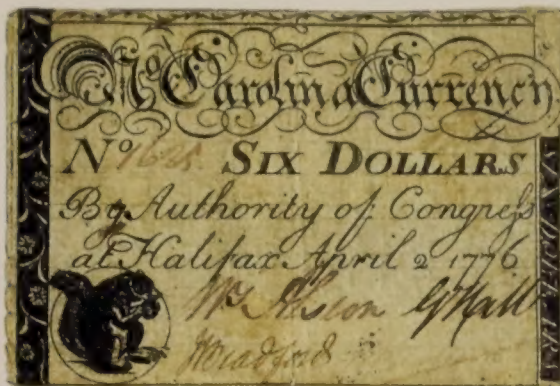 No Carolina Currency
No 1625 SIX DOLLARS
By Authority of Congreſs
at Halifax April 2 1776
Wm Alston G Hall
J Bradford